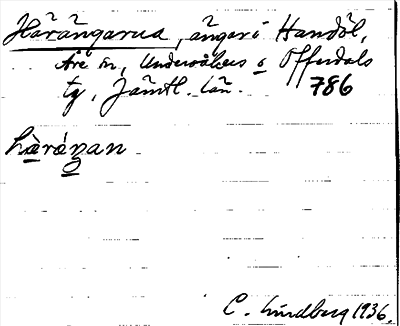 Hårångarna, ängar i Handöl,
Åre sn, Undersåkers o Offerdals
tg, Jämtl. län. 786
hàránan
C. Lindberg 1936.